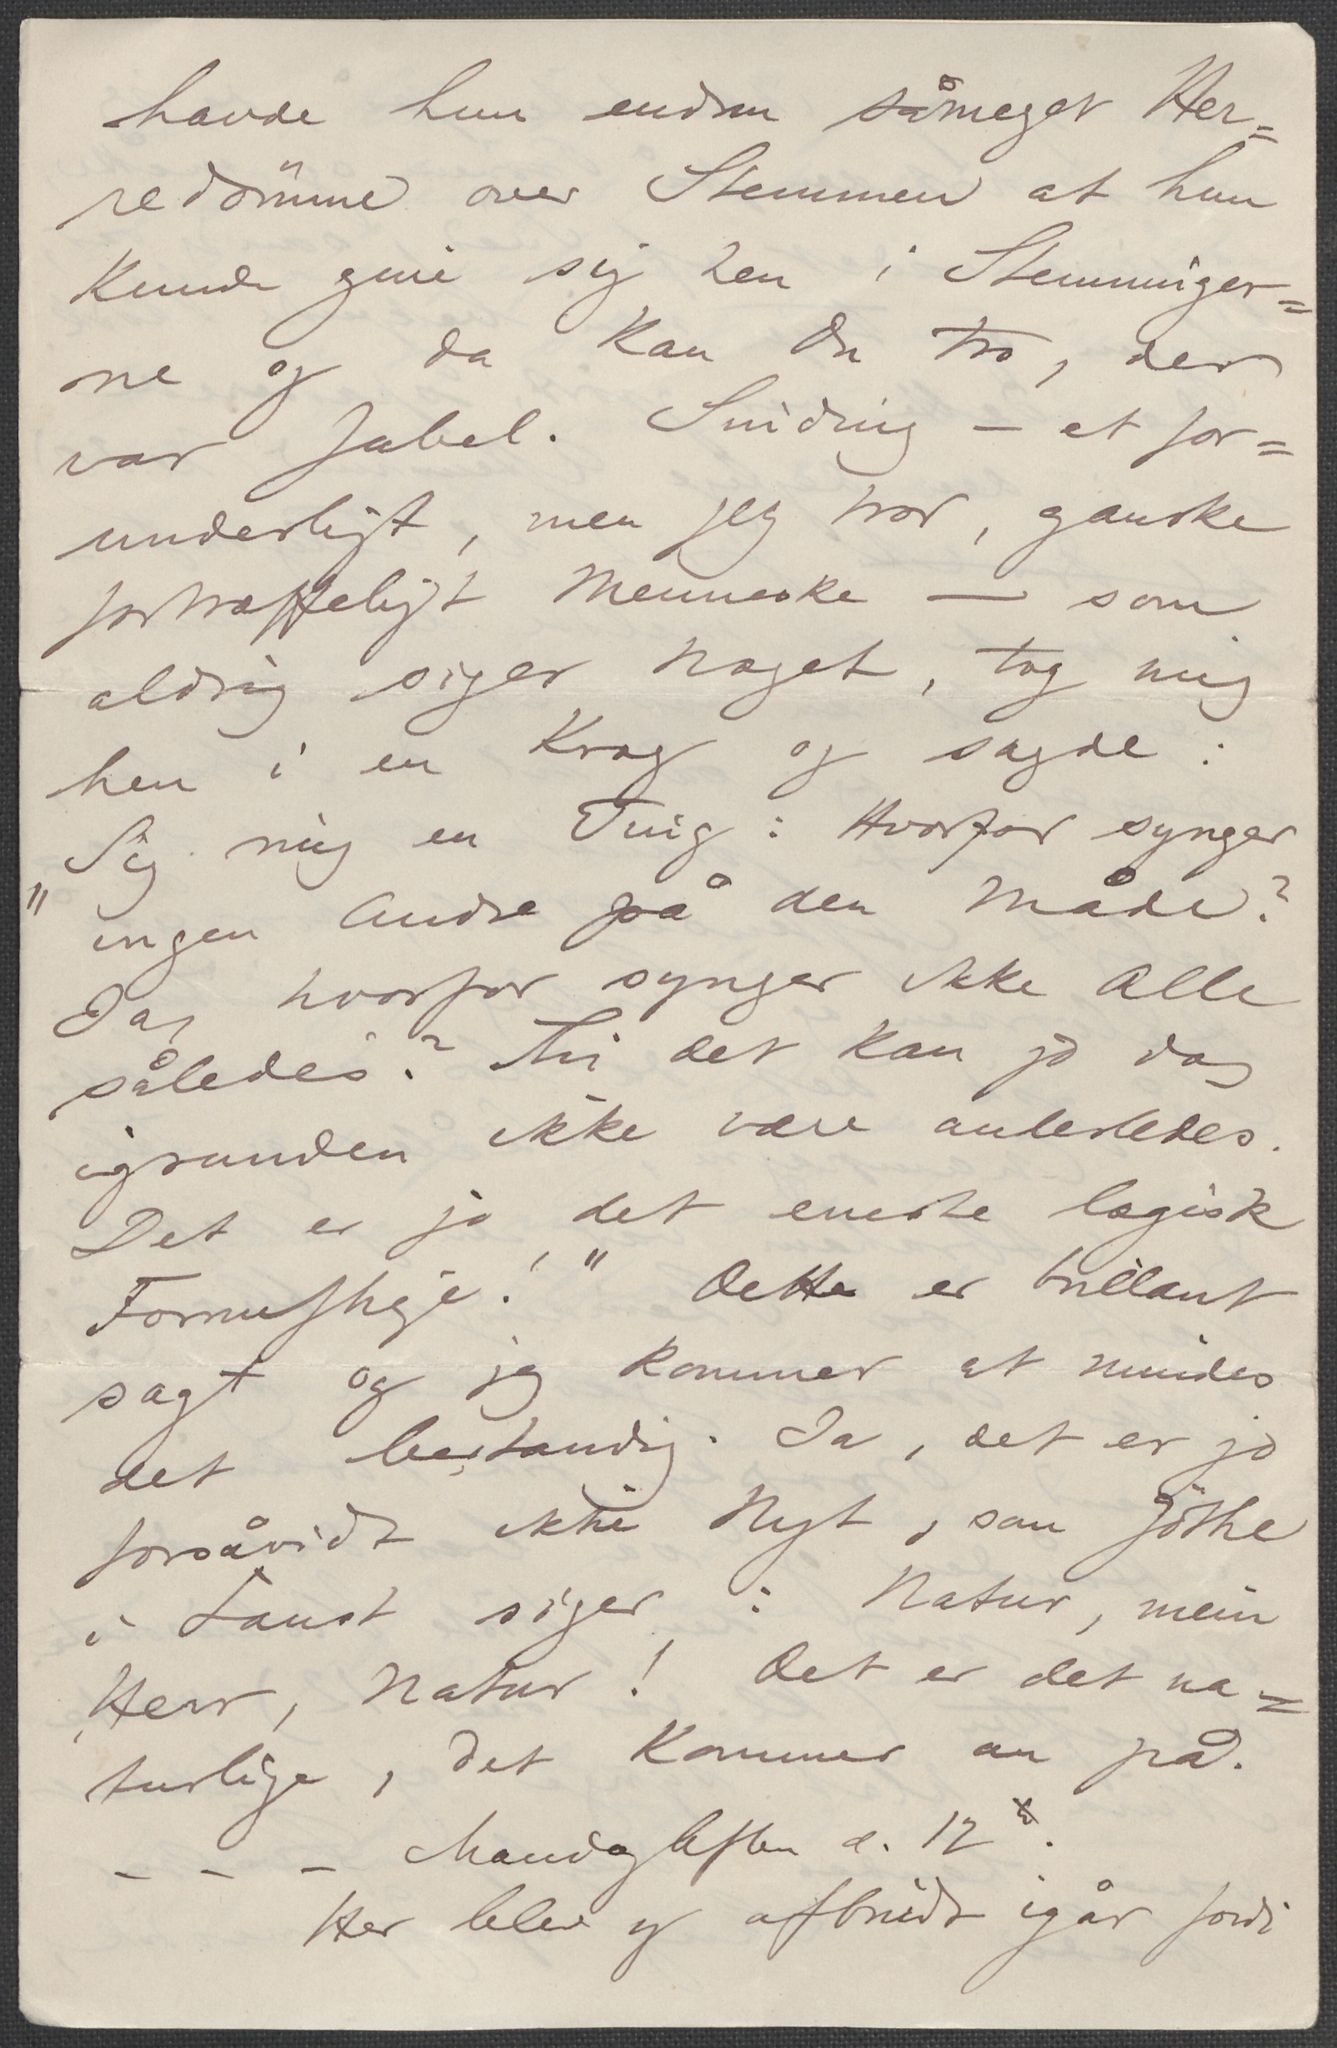 havde hun endnu såmeget Her=
redömme over Stemmen at hun
kunde give sig hen i Stemninger=
ne og da kan Du tro, der
var Jubel. Sinding – et for=
underligt, men jeg tror, ganske
fortræffeligt Menneske — som
aldrig siger Noget, tog mig
hen i en Krog og sagde:
"Sig mig en Ting: Hvorfor synger
ingen Andre på den Måde?
Ja, hvorfor synger ikke Alle
således? Thi det kan jo dog
igrunden ikke være anderledes.
Det er jo det eneste logisk
Fornuftige!" Dette er brillant
sagt og jeg kommer at mindes
det bestandig. Ja, det er jo
forsåvidt ikke Nyt, som Göthe
i Faust siger: Natur, mein
Herr, Natur! Det er det na=
turlige, det kommer an på.
– – – Mandag Aften d. 12
Her blev jeg afbrudt igår fordi